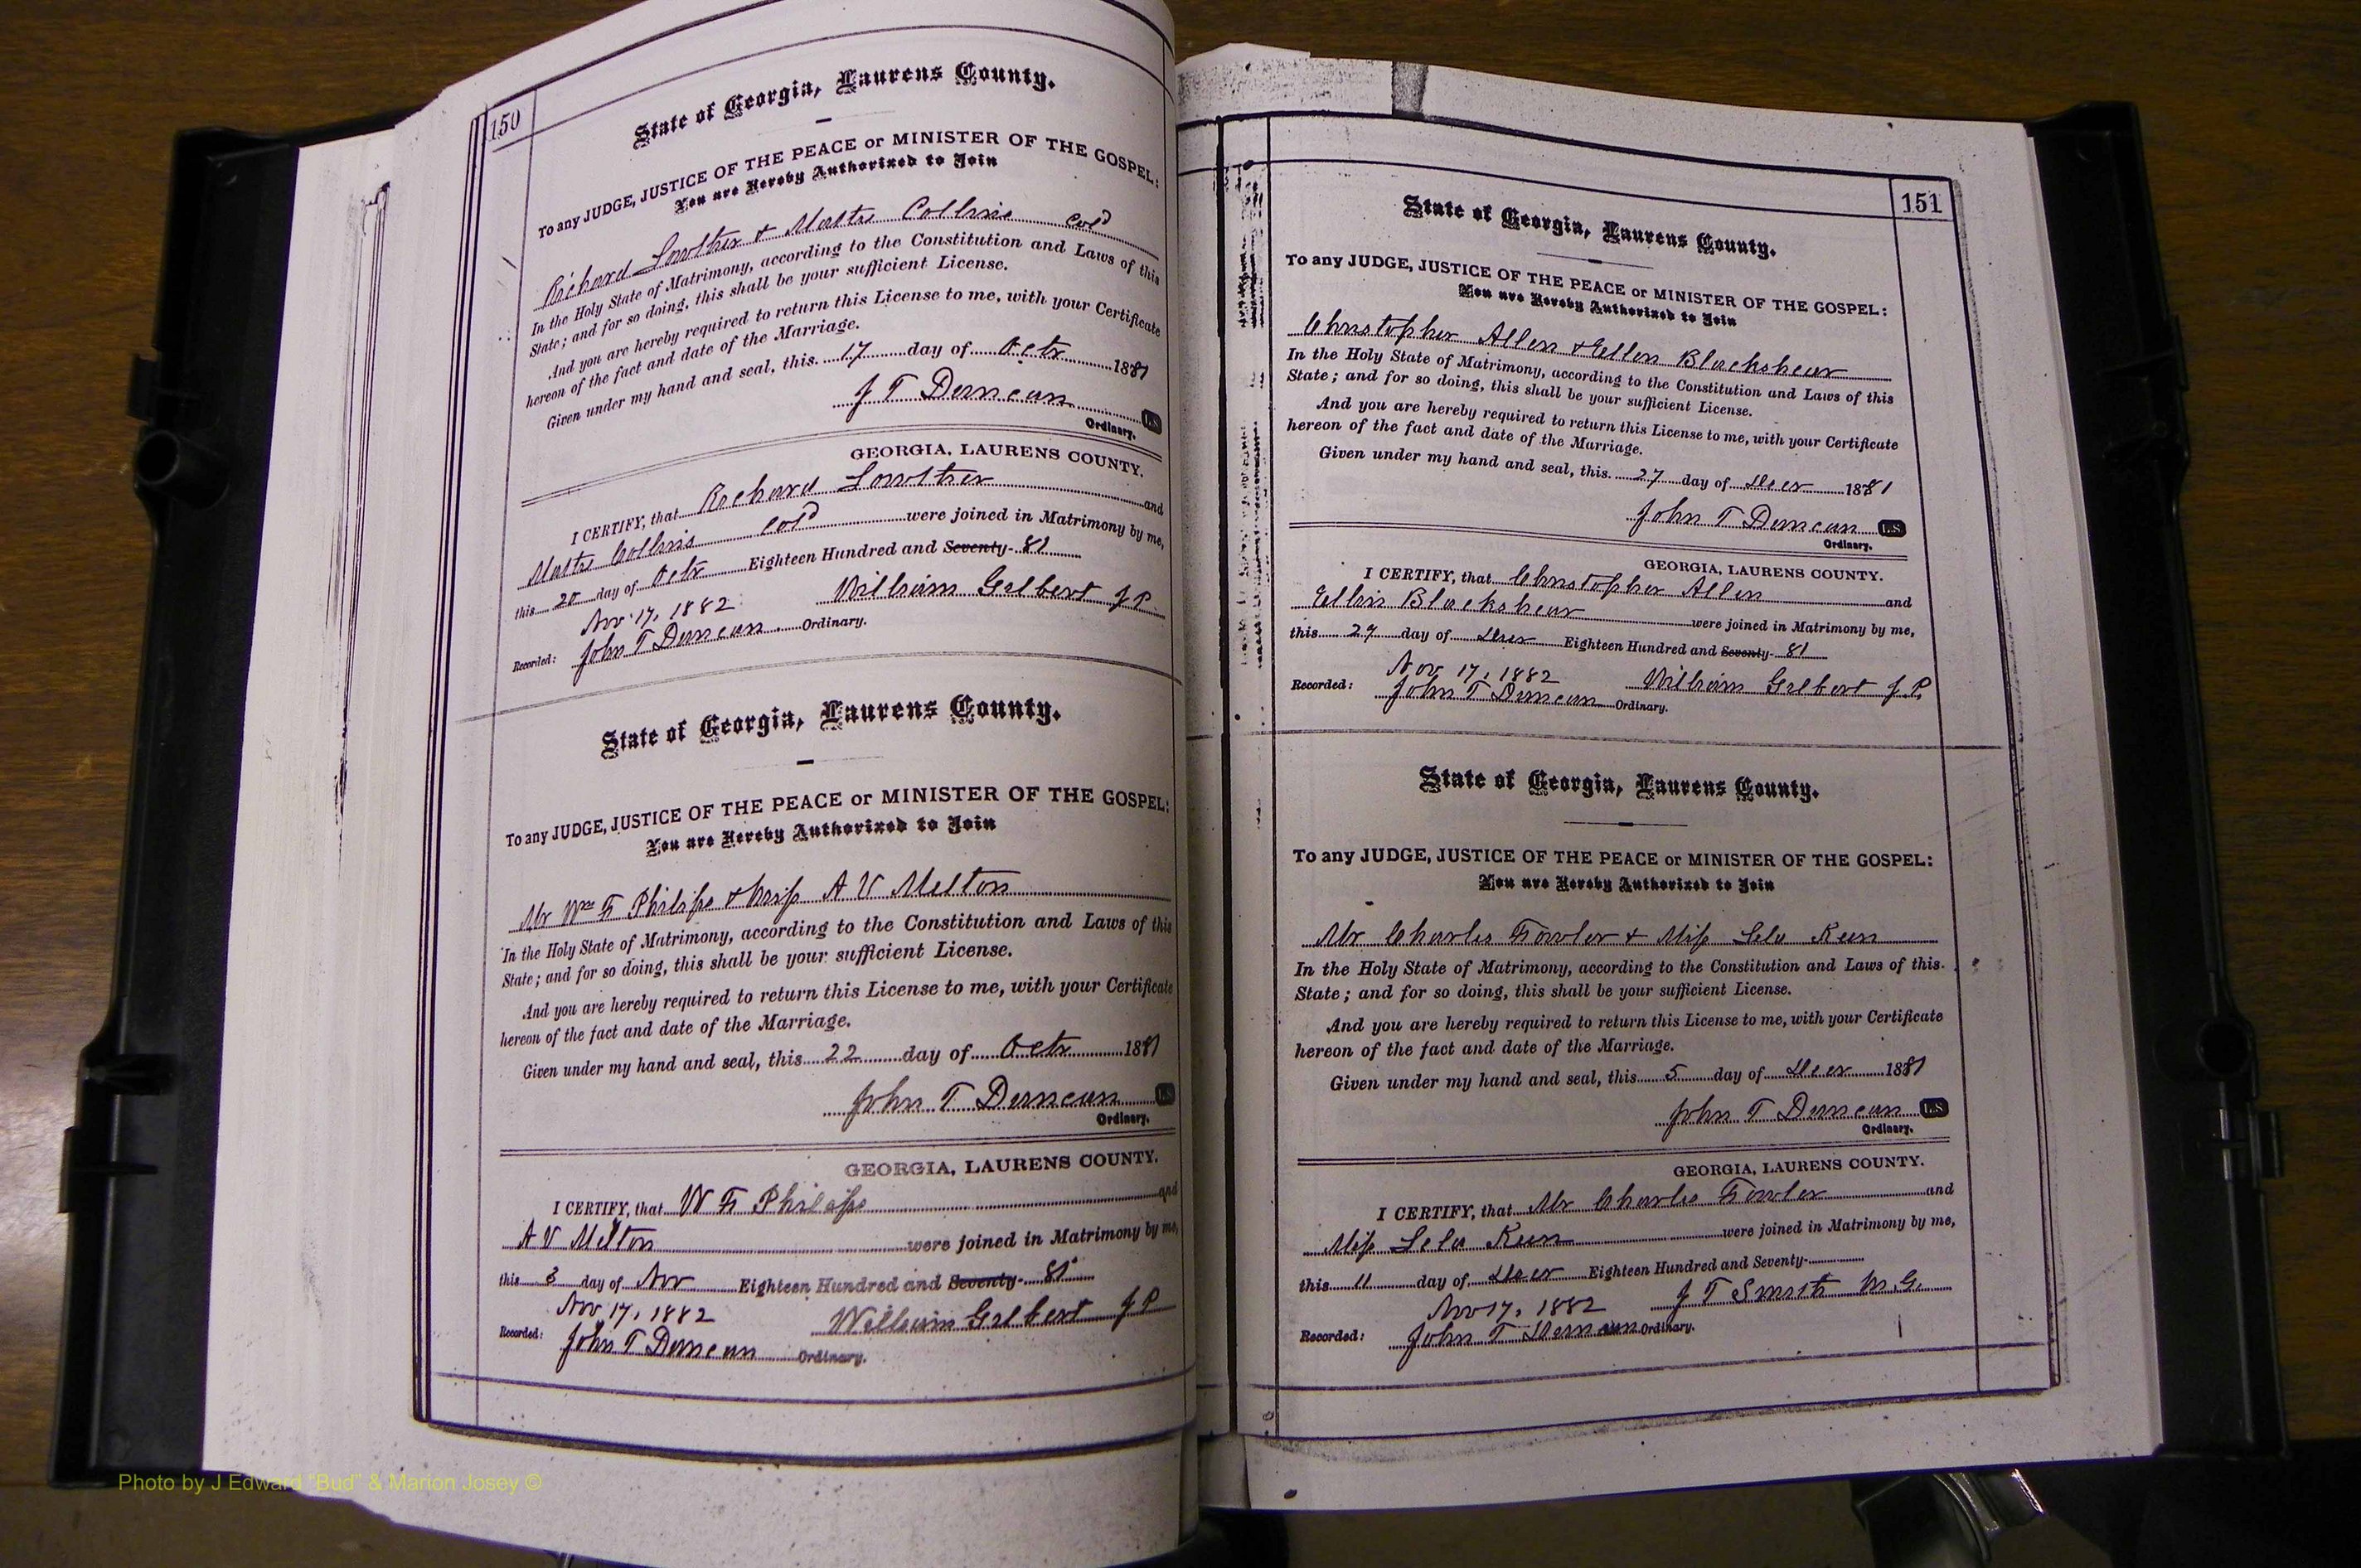 150
State of Georgia, Laurens County.
To any JUDGE, JUSTICE OF THE PEACE or MINISTER OF THE GOSPEL:
You are Hereby Authorized to Join
Richard Lowther & Collins Col'd
In the Holy State of Matrimony, according to the Constitution and Laws of this
State; and for so doing, this shall be your sufficient License.
And you are hereby required to return this License to me, with your Certificate
hereon of the fact and date of the Marriage.
Given under my hand and seal, this 17 day of Octr 1881
J T Duncan L.S
Ordinary.
GEORGIA, LAURENS COUNTY.
I CERTIFY, that Richard Lowther and
Collins Col'd were joined in Matrimony by me,
this 20 day of Octr Eighteen Hundred and Seventy- 81
Nov 17, 1882 William Gilbert J P
Recorded: John T Duncan Ordinary.
State of Georgia, Laurens County.
To any JUDGE, JUSTICE OF THE PEACE or MINISTER OF THE GOSPEL:
You are Hereby Authorized to Join
Mr Wm F Philips & Miss A V Melton
In the Holy State of Matrimony, according to the Constitution and Laws of this
State; and for so doing, this shall be your sufficient License.
And you are hereby required to return this License to me, with your Certificate
hereon of the fact and date of the Marriage.
Given under my hand and seal, this 22 day of Octr 1881
John T Duncan L.S
Ordinary.
GEORGIA, LAURENS COUNTY.
I CERTIFY, that W F Philips and
A V Melton were joined in Matrimony by me,
this 3 day of Nov Eighteen Hundred and Seventy- 81
Nov 17, 1882 William Gilbert J P
Recorded: John T Duncan Ordinary.
151
State of Georgia, Laurens County.
To any JUDGE, JUSTICE OF THE PEACE or MINISTER OF THE GOSPEL:
You are Hereby Authorized to Join
Christopher Allen & Ellen Blackshear
In the Holy State of Matrimony, according to the Constitution and Laws of this
State; and for so doing, this shall be your sufficient License.
And you are hereby required to return this License to me, with your Certificate
hereon of the fact and date of the Marriage.
Given under my hand and seal, this 27 day of Decr 1881
John T Duncan L.S.
Ordinary.
GEORGIA, LAURENS COUNTY.
I CERTIFY, that Christopher Allen and
Ellen Blackshear were joined in Matrimony by me,
this 29 day of Decr Eighteen Hundred and Seventy- 81
Nov 17, 1882 William Gilbert J. P.
Recorded: John T Duncan Ordinary.
State of Georgia, Laurens County.
To any JUDGE, JUSTICE OF THE PEACE or MINISTER OF THE GOSPEL:
You are Hereby Authorized to Join
Mr Charles Fowler & Miss Lela Keen
In the Holy State of Matrimony, according to the Constitution and Laws of this
State; and for so doing, this shall be your sufficient License.
And you are hereby required to return this License to me, with your Certificate
hereon of the fact and date of the Marriage.
Given under my hand and seal, this 5 day of Decr 1881
John T Duncan L.S
Ordinary.
GEORGIA, LAURENS COUNTY.
I CERTIFY, that Mr Charles Fowler and
Miss Lela Keen were joined in Matrimony by me,
this 11 day of Decr Eighteen Hundred and Seventy-
Nov 17, 1882 J T Smith M.G.
Recorded: John T Duncan Ordinary.
Photo by J Edward "Bud" & Marion Josey ©